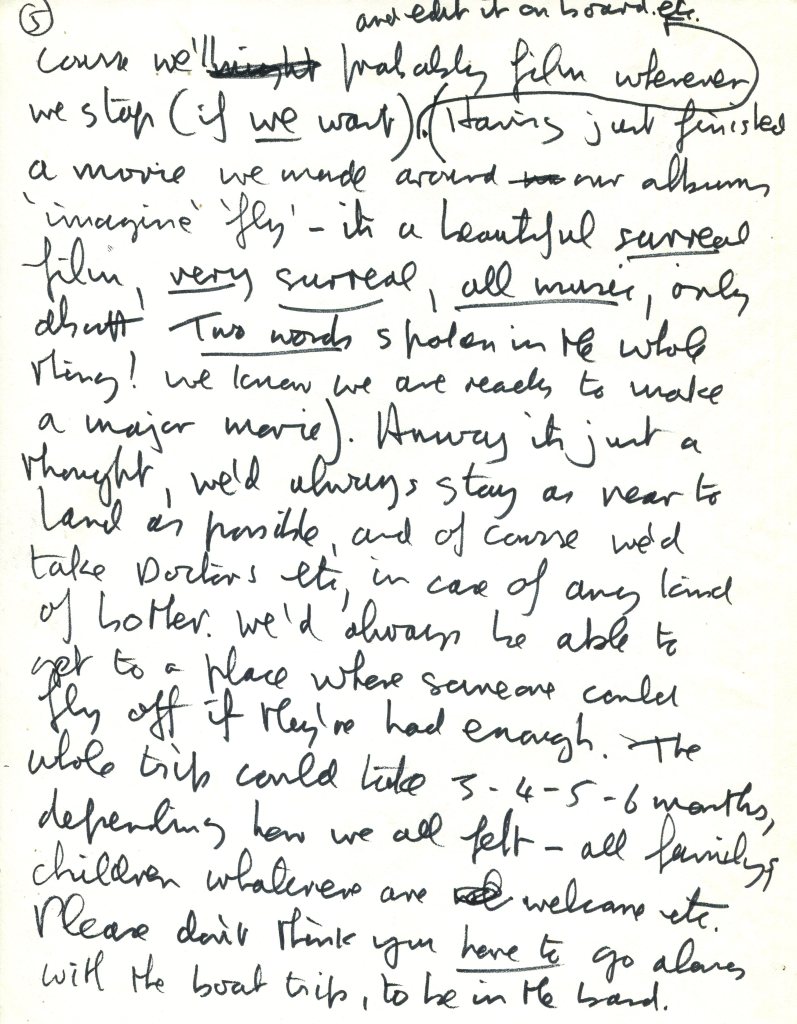 5
and edit it on board. etc.
course we'll might probably film wherever
we stop (if we want). (Having just finished
a movie we made around our albums
'imagine' 'fly' - its a beautiful surreal
film, very surreal, all music, only
about Two words spoken in the whole
thing! we know we are ready to make
a major movie). Anway its just a
thought, we'd always stay as near to
Land as possible, and of course we'd
take Doctors etc, in case of any kind
of bother. we'd always be able to
get to a place where someone could
fly off if they've had enough. The
whole trip could take 3-4-5-6 months,
depending how we all felt - all family,
children whatever are welcome etc.
Please don't think you have to go along
with the boat trip, to be in the band.